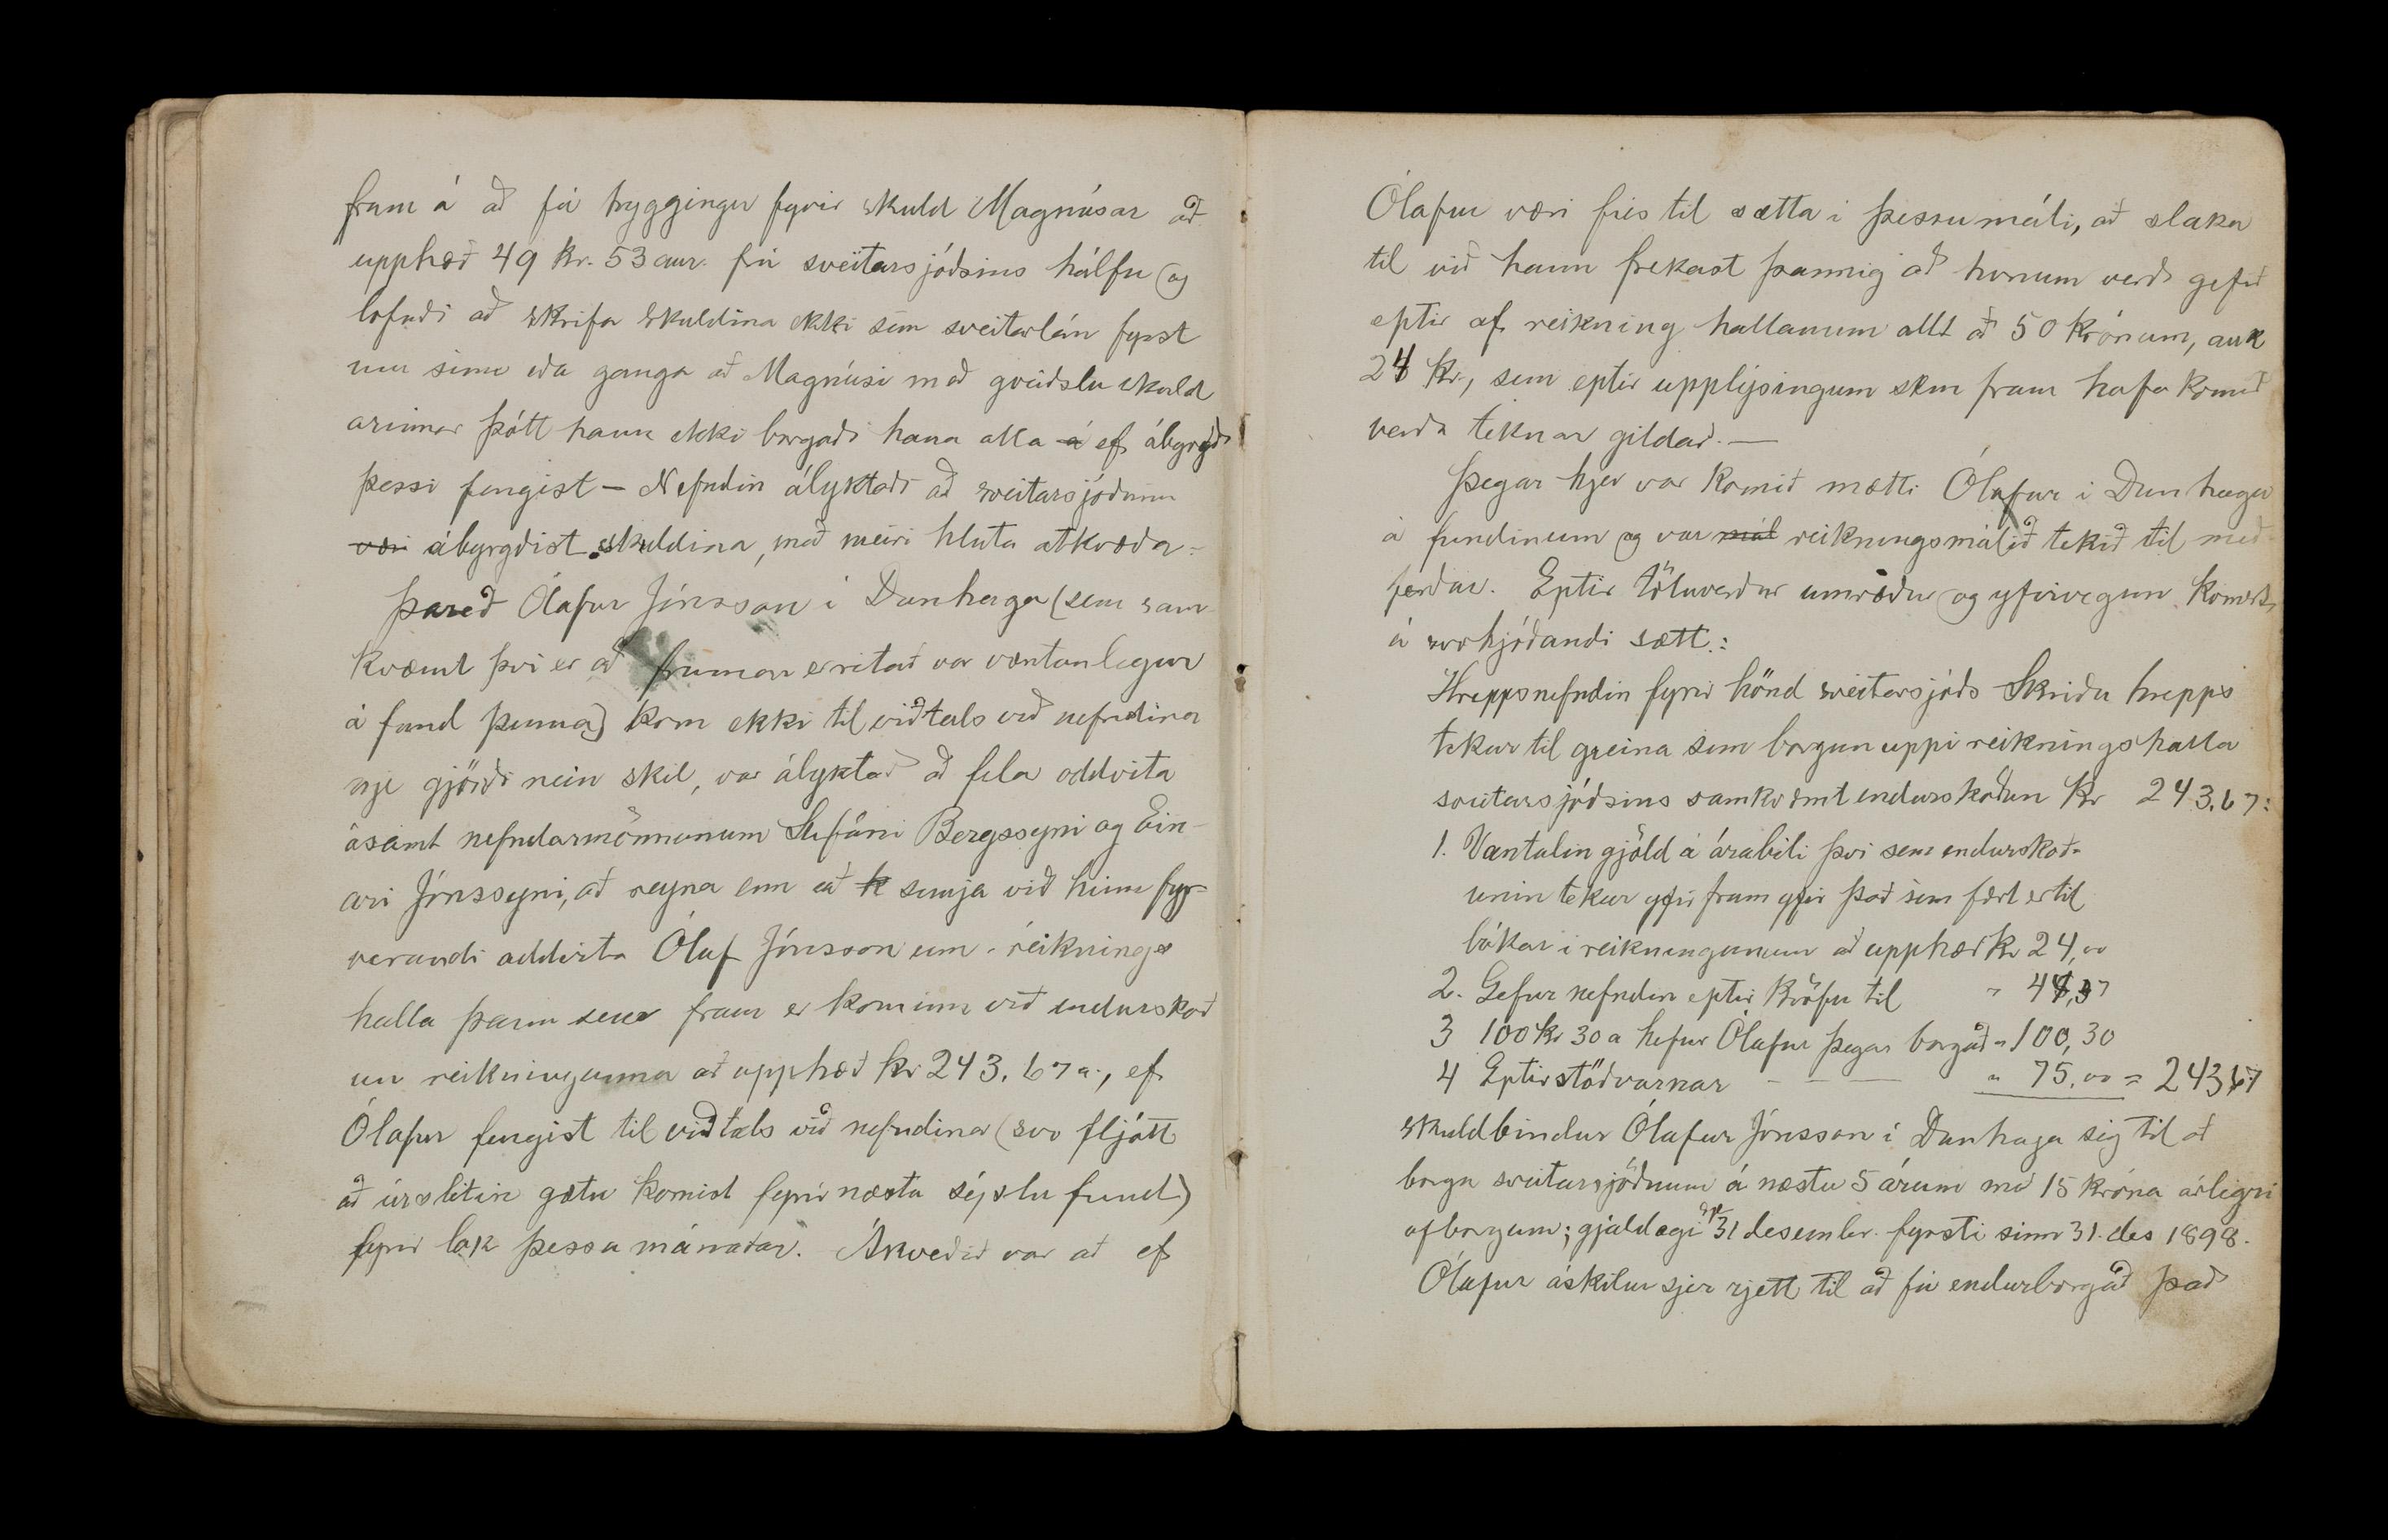 fram á að fá tryggingu fyrir skuld Magnúsar að
upphæð 49 kr. 53 aur. frá sveitarsjóðsins hálfu (og
lofaði að skrifa skuldina ekki sem sveitarlán fyrst
um sinn eða ganga að Magnúsi með greiðslu skuld
arinnar þótt hann ekki borgaði hana alla á ef ábyrgð
þessi fengist - Nefndin ályktaði að sveitarsjóðurinn
væri ábyrgðist skuldina, með meiri hluta atkvæða.
Þareð Ólafur Jónsson í Dunhaga (sem sam
kvæmt því er að framan er ritað var væntanlegur
á fund þenna) kom ekki til viðtals við nefndina
nje gjörði nein skil, var ályktað að fela oddvita
ásamt nefndarmönnunum Stefáni Bergssyni og Ein-
ari Jónssyni, að reyna enn að semja við hinn fyr-
verandi oddvita Ólaf Jónsson um reiknings
halla þann sem fram er kominn við endurskoð
un reikninganna að upphæð kr 243.67 a., ef
Ólafur fengist til viðtals við nefndina (svo fljótt
að úrslitin gætu komist fyrir næsta sýslufund)
fyrir lok þessa mánaðar. Ákveðið var að ef
Ólafur væri fús til sætta í þessu máli, að slaka
til við hann frekast þannig að honum verði gefið
eptir af reikning hallanum allt að 50 krónum, auk
24 kr., sem eptir upplýsingum sem fram hafa komið
verða teknar gildar. -
Þegar hjer var komið mætti Ólafur í Dunhaga
á fundinum og var mál reikningsmálið tekið til með
ferðar. Eptir töluverðar umræður og yfirvegun komst
á svohljóðandi sætt:
Hreppsnefndin fyrir hönd sveitarsjóðs Skriðuhrepps
tekur til greina sem borgun uppí reikningshalla
sveitarsjóðsins samkvæmt endurskoðun kr 243.67:
1. Vantalin gjöld á árabili því sem endurskoð-
unin tekur yfir fram yfir það sem fært er til
bókar í reikningunum að upphæð kr 24,00
2. Gefur nefndin eptir kröfu til " 44,37
3 100 kr 30 a hefur Ólafur þegar borgað " 100,30
4 Eptirstöðvarnar - - - " 75,00 = 243,67
skuldbindur Ólafur Jónsson í Dunhaga sig til að
borga sveitarsjóðnum á næstu 5 árum með 15 króna árlegri
afborgun; gjalddagi 31 desember fyrsti sinn 31. des 1898.
Ólafur áskilur sjer rjett til að fá endurborgað það